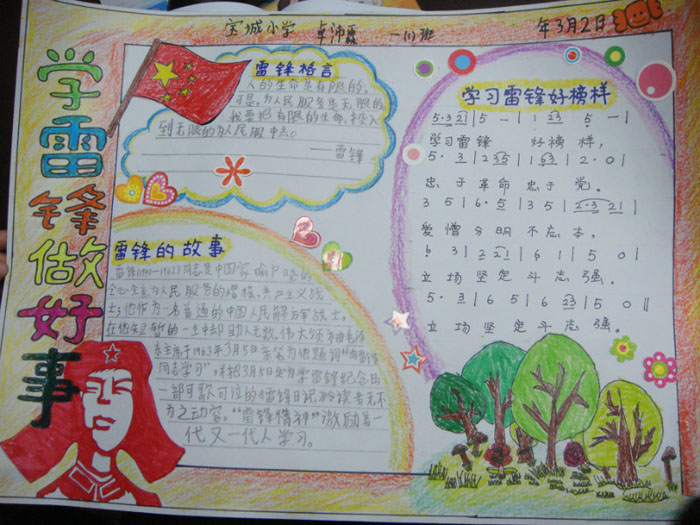 宝城小学 卓沛霖 一(1)班 年3月2日
学雷锋做好事
雷锋格言
人的生命是有限的,
可是,为人民服务是无限的
我要把有限的生命,投入
到无限的为人民服中去。
——雷锋
雷锋的故事
同志是中国家喻户晓的
全心全意为人民服务的楷模,共产主义战
士;他作为一名普通的中国人民解放军战士,
在他短暂的一生中却助人无数,伟大领袖毛泽
东主席于1963年3月5日亲笔为他题词“向雷锋
同志学习”,并把3月5日定为学雷锋纪念日
一部可歌可泣的《雷锋日记》令读者无不
为之动容。“雷锋精神”激励着一
代又一代人学习。
学习雷锋好榜样
学习雷锋 好榜样,
忠于革命忠于党。
爱憎分明不忘本,
立场坚定斗志强。
立场坚定斗志强。